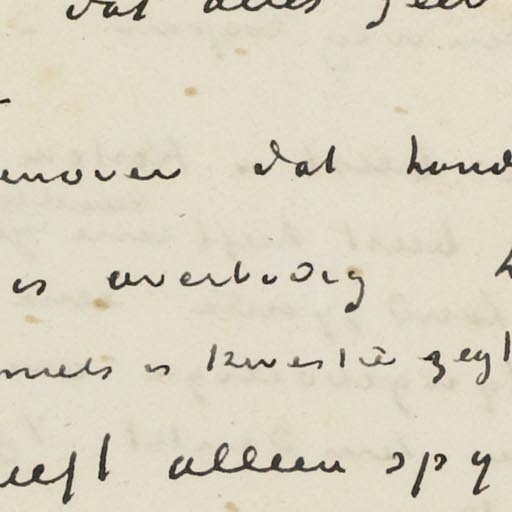 dat alles
enover dat hond
is overbodig
mels is kwestie zegt
eeft alleen spy